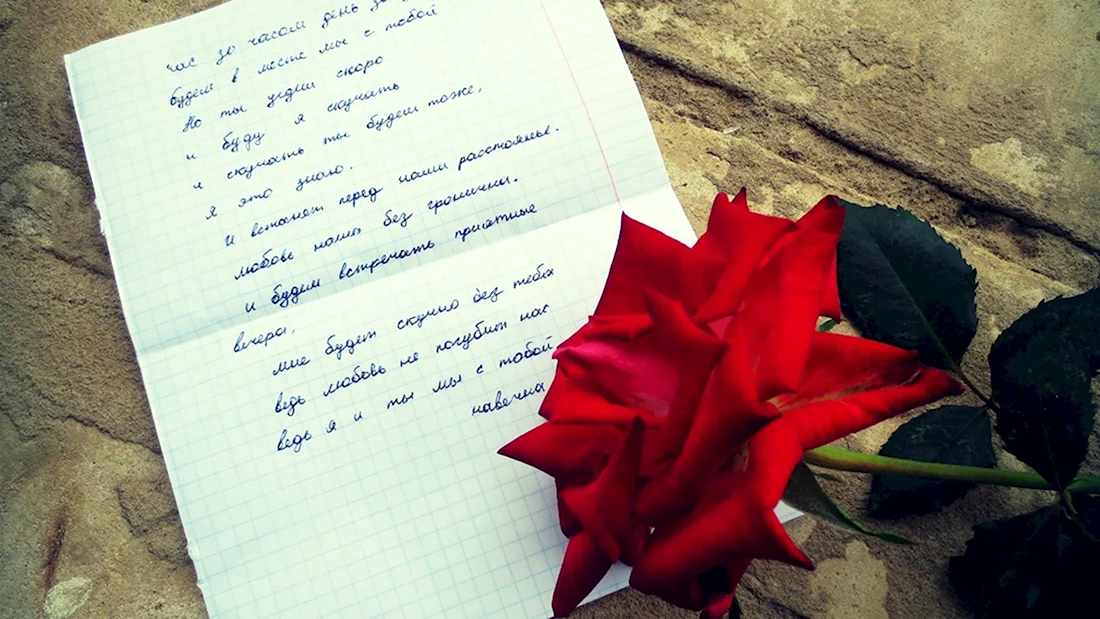 час за часом день за
будем в месте мы с тобой
Но ты уедии скоро
и буду я скучать
и скучать ты будеш тоже,
я это знаю.
И встанет перед нами расстоянье.
любовь наша без гранични.
и будем встречать приятные
вечера,
мне будет скучно без тебя
ведь любовь не погубит нас
ведь я и ты мы с тобой
навечна